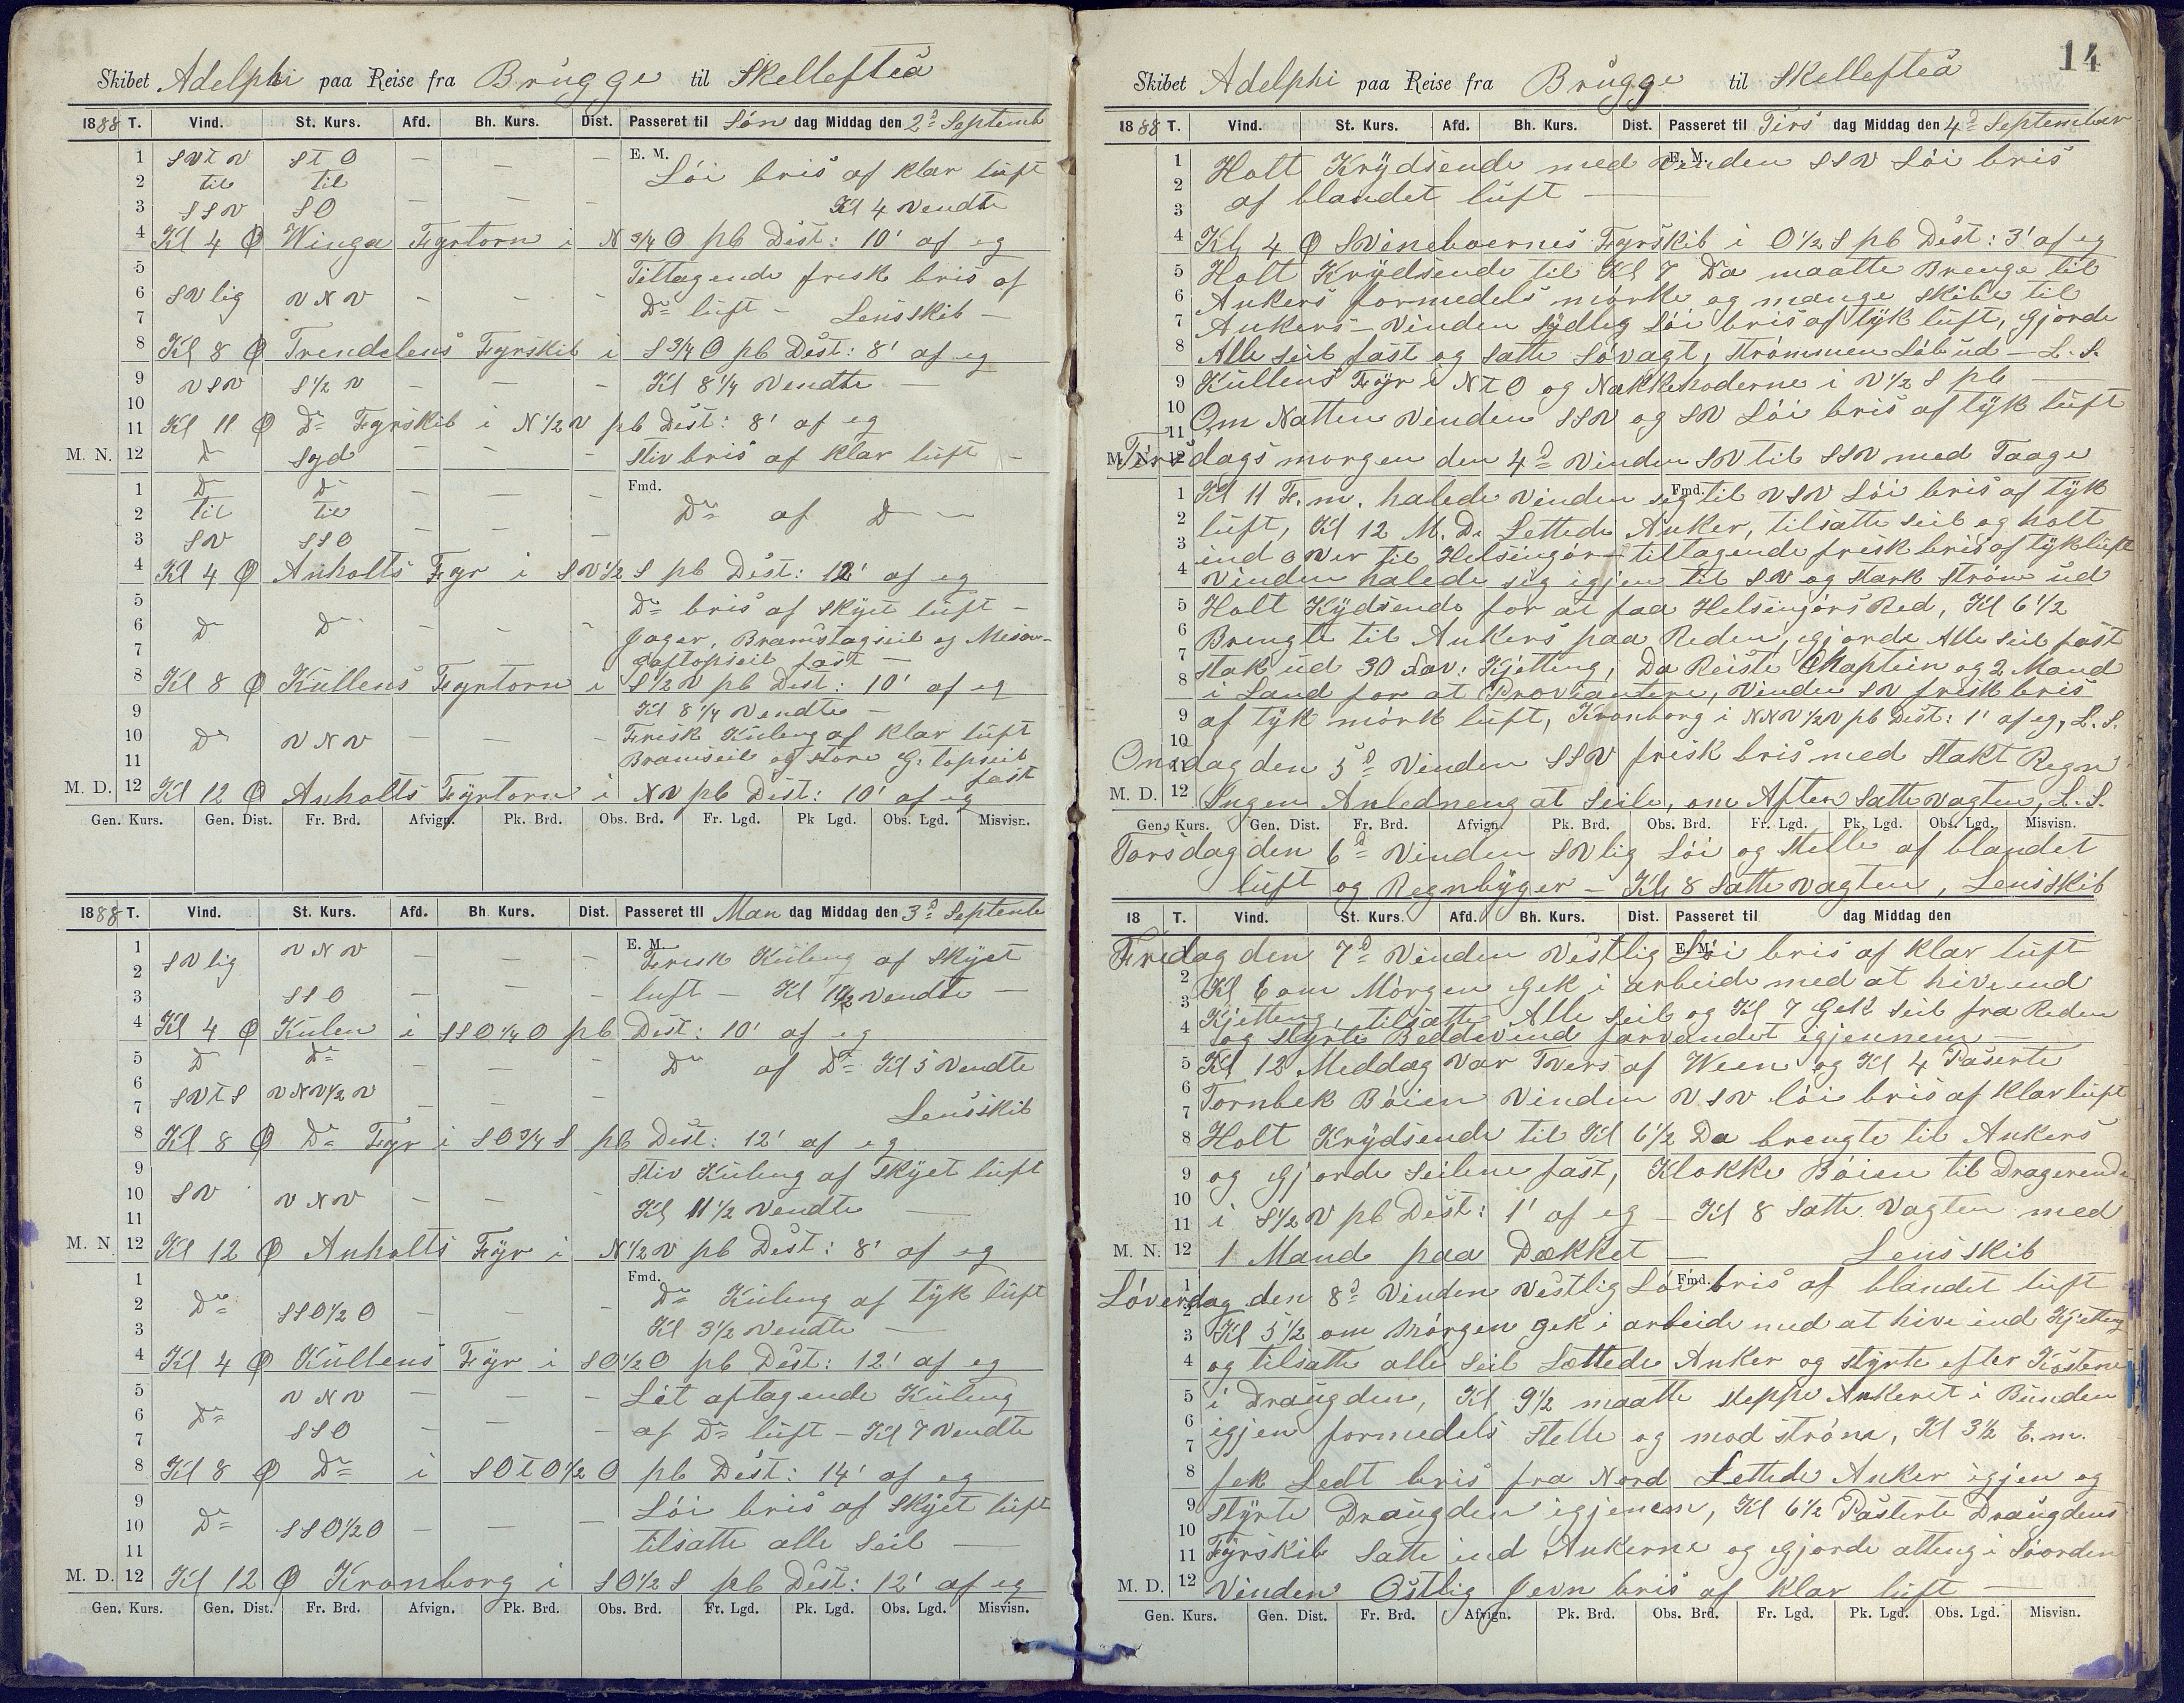 Skibet Adelphi paa Reise fra Brügge til Skellefteå
1888 T. Vind. St. Kurs. Afd. Bh. Kurs. Dist. Passeret til Søn dag Middag den 2d Septemb
1 SVtV StO — — — E. M. Löi bris af klar lüft
2 til til
3 SSV SO — — — Kl 4 Vendte
4 Kl 4 Ø Winga Fyrtorn i N 3/4 O pb Dist: 10' af eg
5 Tiltagende frisk bris af
6 SVlig VNV — — —
7 Do lüft — Lensskib —
8 Kl 8 Ø Trendelens Fyrskib i S 3/4 O pb Dist: 8' af eg
9 VSV S 1/2 V — — — Kl 8 1/4 Vendte —
10
11 Kl 11 Ø Do Fyrskib i N 1/2 V pb Dist: 8' af eg
M. N. 12 Do Syd — — — Stiv bris af klar lüft —
1 Do Do — — — Fmd.
2 til til Do af Do —
3 SV SSO — — —
4 Kl 4 Ø Anholts Fyr i SV 1/2 S pb Dist: 12' af eg
5 Do bris af Skyet lüft —
6 Do Do — — — Jager, Bramstagseil og Mesan-
7 gaftopseil fast —
8 Kl 8 Ø Küllens Fyrtorn i S 1/2 V pb Dist: 10' af eg
9 Kl 8 1/4 Vendte —
10 Do VNV — — — Frisk Küling af klar lüft
11 Bramseil og store G: topseil
fast
M. D. 12 Kl 12 Ø Anholts Fyrtorn i NV pb Dist: 10' af eg
Gen. Kurs. Gen. Dist. Fr. Brd. Afvign. Pk. Brd. Obs. Brd. Fr. Lgd. Pk Lgd. Obs. Lgd. Misvisn.
1888 T. Vind. St. Kurs. Afd. Bh. Kurs. Dist. Passeret til Man dag Middag den 3d Septemb
1 SVlig VNV — — — E. M.
2 Frisk Küling af Skyet
3 SSO — — — lüft — Kl 1 1/2 Vendte —
4 Kl 4 Ø Külen i SSO 1/4 O pb Dist: 10' af eg
5 Do Do — — — Do af Do Kl 5 Vendte
6 SVtS VNV 1/2 V — — —
7 Lensskib
8 Kl 8 Ø Do Fyr i SO 3/4 S pb Dist: 12' af eg
9 Stiv Küling af Skyet lüft
10 SV VNV — — —
11 Kl 11 1/2 Vendte —
M. N. 12 Kl 12 Ø Anholts Fÿr i N 1/2 V pb Dist: 8' af eg
1 Fmd. Do Küling af tyk lüft
2 Do SSO 1/2 O — — —
3 Kl 3 1/2 Vendte —
4 Kl 4 Ø Küllens Fÿr i SO 1/2 O pb Dist: 12' af eg
5 VNV — — — Lit aftagende Küling
6 Do
7 SSO — — — af Do lüft — Kl 7 Vendte
8 Kl 8 Ø Do i SOtO 1/2 O pb Dist: 14' af eg
9 Löi bris af Skyet lüft
10 Do SSO 1/2 O — — —
11 tilsatte alle Seil —
M. D. 12 Kl 12 Ø Kronborg i SO 1/2 S pb Dist: 12' af eg
Gen. Kurs. Gen. Dist. Fr. Brd. Afvign. Pk. Brd. Obs. Brd. Fr. Lgd. Pk. Lgd. Obs. Lgd. Misvisn.
14
Skibet Adelphi paa Reise fra Brügge til Skellefteå
1888 T. Vind. St. Kurs. Afd. Bh. Kurs. Dist. Passeret til Tirs dag Middag den 4d September
Holt Krÿdsende med Vinden SSV Löi bris
af blandet lüft —
Kl 4 Ø Svineboernes Fyrskib i O 1/2 S pb Dist: 3' af eg
Holt Krÿdsende til Kl 7 Da maatte Brenge til
Ankers formedels mörke og mange skibe til
Ankers — Vinden Sÿdlig Löi bris af tÿk lüft, gjorde
Alle seil fast og Satte Sövagt, Strömmen Löb ud — L. S.
Küllens Fÿr i NtO og Nakkehoderne i V 1/2 S pb —
Om Natten Vinden SSV og SV Löi bris af tÿk lüft
Tirsdags morgen den 4d Vinden SV til SSV med Taage
Kl 11 F.m. halede Vinden seg til VSV Löi bris af tÿk
lüft, Kl 12 M.D. Lettede Anker, tilsatte Seil og holt
ind over til Helsingör — tiltagende frisk bris af tÿk lüft
Vinden halede sig igjen til SV og stark Ström ud
Holt Kÿdsende for at faa Helsingörs Red, Kl 6 1/2
Brengte til Ankers paa Reden, gjorde Alle Seil fast
Stak ud 30 Fav: Kjetting, Da Reiste Kaptein og 2 Mand
i Land for at Proviantere, Vinden SV frisk bris
af tÿk mörk lüft, Kronborg i NNV 1/2 V pb Dist: 1' af eg, L. S.
Onsdag den 5d Vinden SSV frisk bris med Stakt Regn
Ingen Anledneng at Seile, om Aften Satte Vagten, L. S.
Gen. Kurs. Gen. Dist. Fr. Brd. Afvign. Pk. Brd. Obs. Brd. Fr. Lgd. Pk. Lgd. Obs. Lgd. Misvisn.
Torsdag den 6d Vinden SVlig Löi og Stelle af blandet
lüft og Regnbÿger — Kl 8 Satte Vagten, Lensskib
18 T. Vind. St. Kurs. Afd. Bh. Kurs. Dist. Passeret til dag Middag den
Fredag den 7d Vinden Vestlig Löi bris af klar lüft
Kl 6 om Mörgen gek i arbeide med at hive ind
Kjetteng, tilsatte Alle Seil og Kl 7 Gek Seil fra Reden
og Styrte Beddevind farvandet igjennem —
Kl 12 Meddag Var Tvers af Ween og Kl 4 Paserte
Tornbek Böien Vinden VSV löi bris af klar lüft
Holt Krÿdsende til Kl 6 1/2 Da brengte til Ankers
og gjorde Seilene fast, Klokke Böien til Dragerende
i S 1/2 V pb Dist: 1' af eg — Kl 8 Satte Vagten med
1 Mand paa Dækket — Lensskib
Löverdag den 8d Vinden Vestlig Löi bris af blandet lüft
Kl 5 1/2 om Mörgen gek i arbeide med at hive ind Kjetteng
og tilsatte alle Seil Lettede Anker og styrte efter Kosterne
i Draügden, Kl 9 1/2 maatte Steppe Ankeret i Bunden
igjen formedels Stelle og mod Ström, Kl 3 1/2 E.m.
fek Ledt bris fra Nord Lettede Anker igjen og
Stÿrte Draügden igjenem, Kl 6 1/2 Paserte Draügdens
Fÿrskib Satte ind Ankerne og gjorde alteng i Söorden
Vinden Östlig Jevn bris af klar lüft —
Gen. Kurs. Gen. Dist. Fr. Brd. Afvign. Pk. Brd. Obs. Brd. Fr. Lgd. Pk. Lgd. Obs. Lgd. Misvisn.